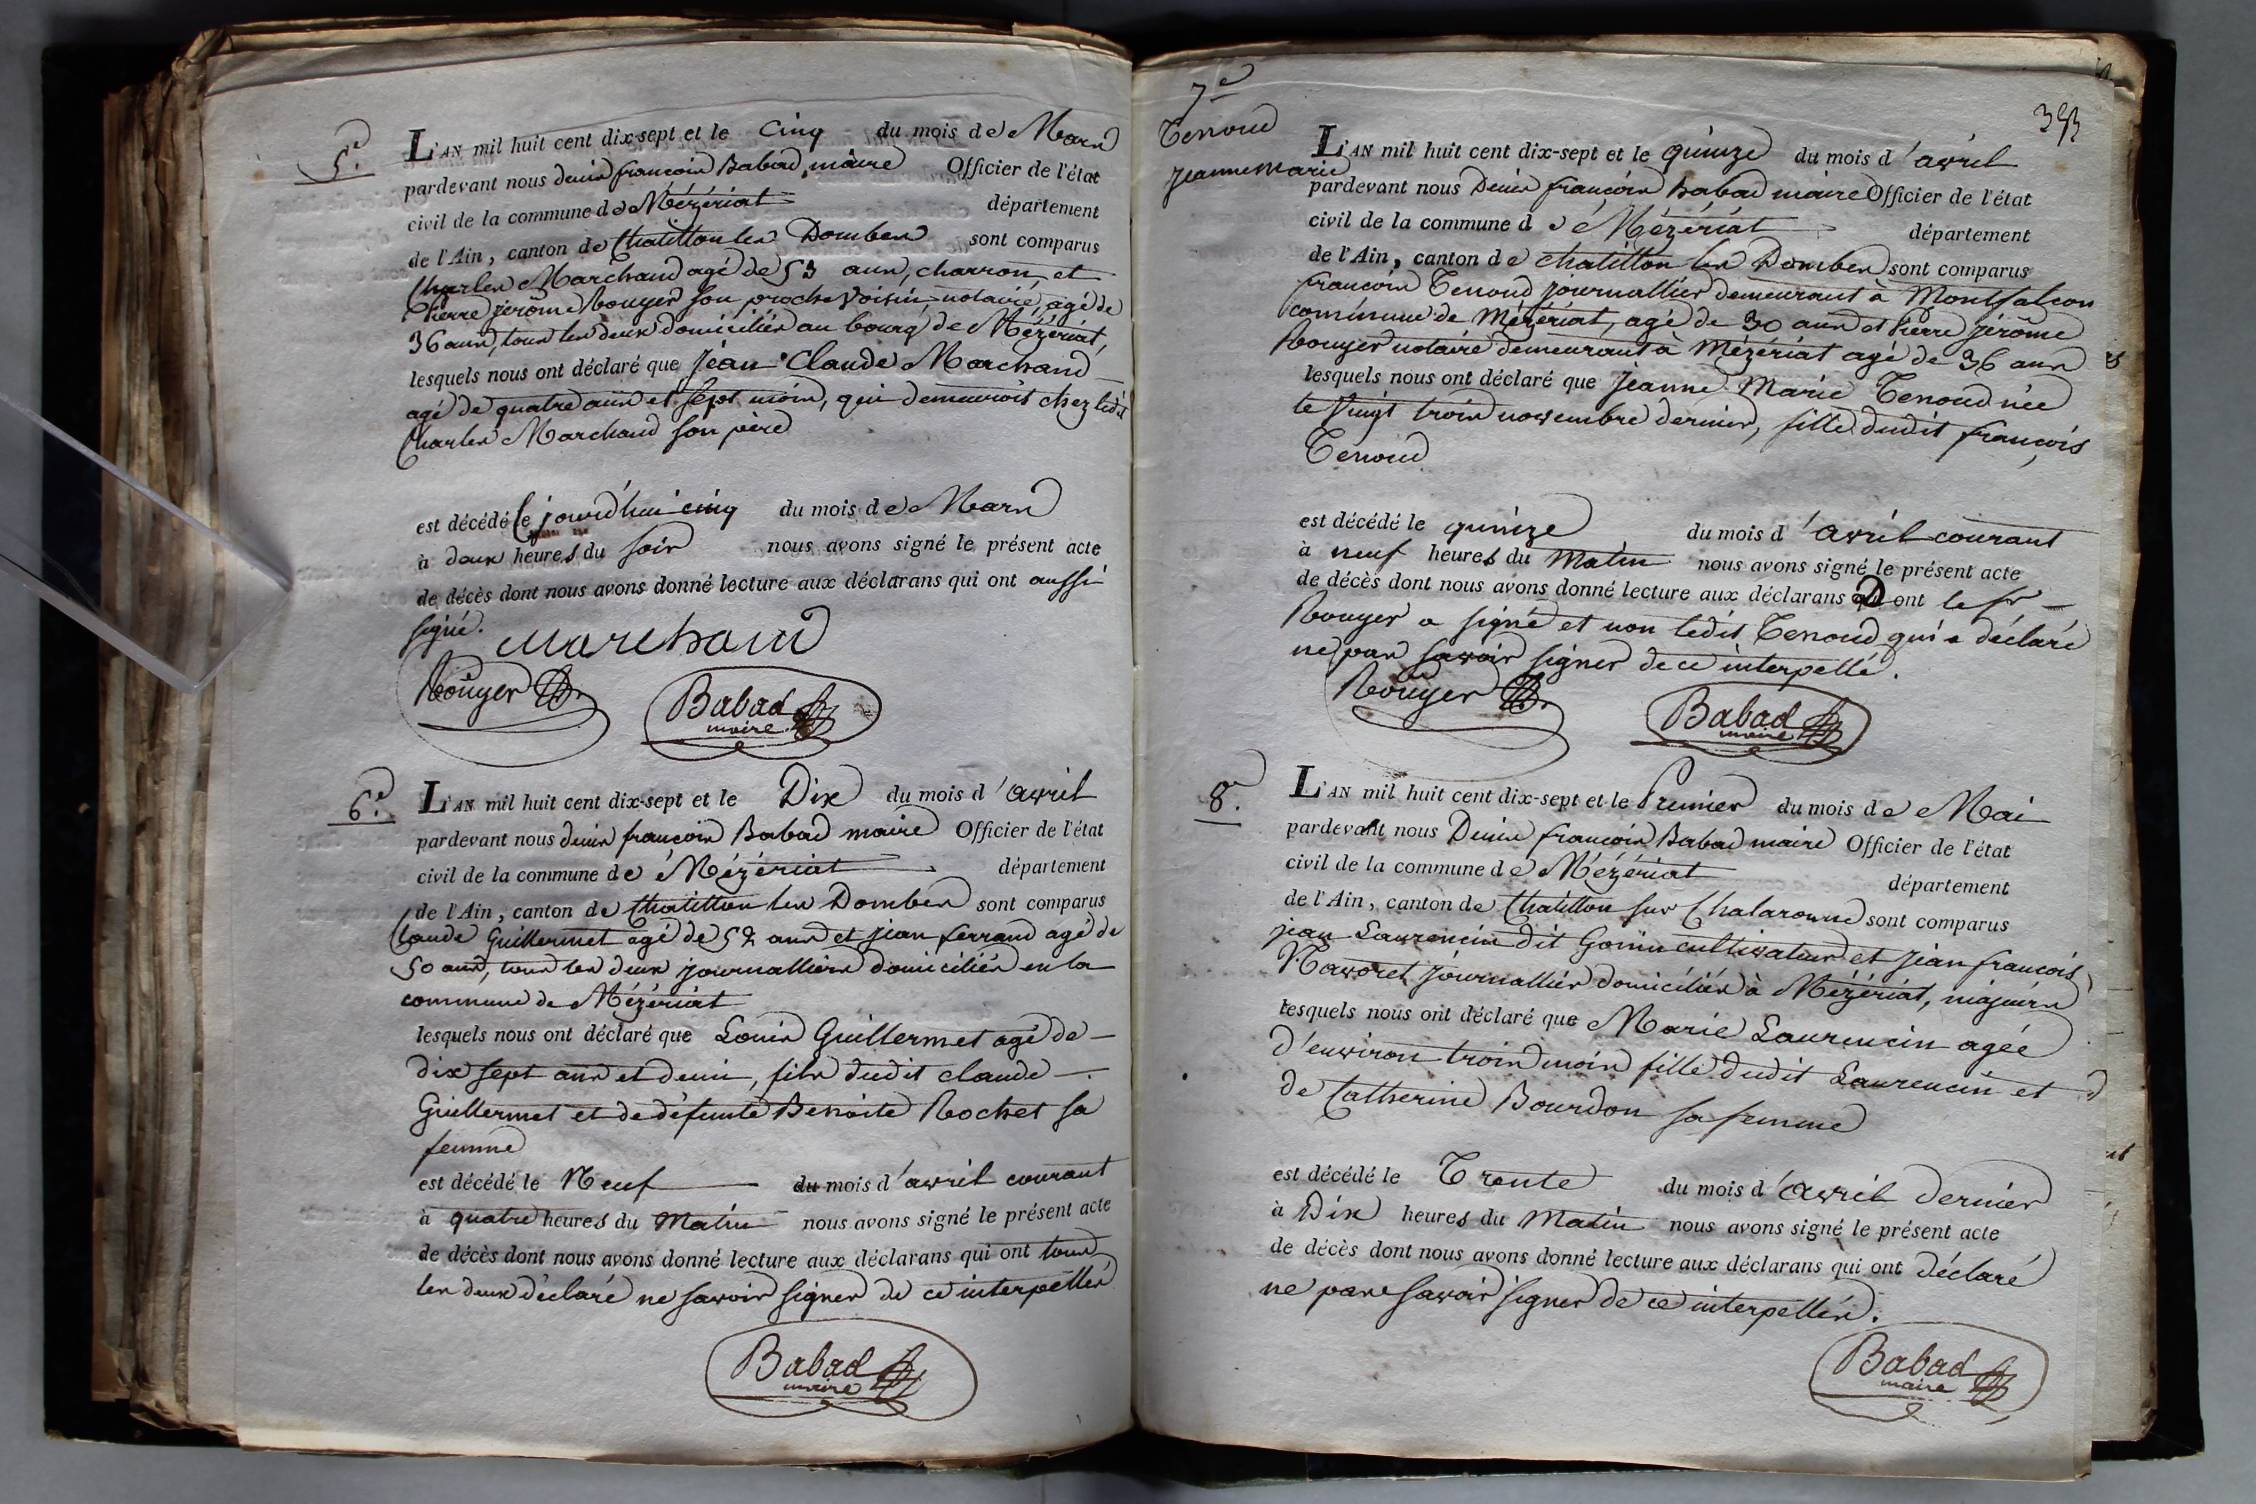 5e.
L'AN mil huit cent dix-sept et le cinq du mois de Mars
pardevant nous denis françois Babad, maire Officier de l'état
civil de la commune de Mézériat département
de l'Ain, canton de Chatillon les Dombes sont comparus
Charles Marchand agé de 53 ans, charron, et
Pierre jérôme Rouyer son proche voisin, notaire, agé de
36 ans, tous les deux domiciliés au bourg de Mézériat,
lesquels nous ont déclaré que Jean Claude Marchand
agé de quatre ans et sept mois, qui demeuroit chez ledit
Charles Marchand son père
est décédé le jourd'hui cinq du mois de Mars
à deux heures du soir nous avons signé le présent acte
de décès dont nous avons donné lecture aux déclarans qui ont aussi
signé.
Marchand
Rouyer
Babad
maire
6e.
L'AN mil huit cent dix-sept et le Dix du mois d'avril
pardevant nous denis françois Babad maire Officier de l'état
civil de la commune de Mézériat département
de l'Ain, canton de Chatillon les Dombes sont comparus
Claude Guillermet agé de 52 ans et jean ferrand agé de
50 ans, tous les deux journalliers domiciliés en la
commune de Mézériat
lesquels nous ont déclaré que Louis Guillermet agé de
dix sept ans et demi, fils dudit claude
Guillermet et de défunte Benoite Rochet sa
femme
est décédé le Neuf du mois d'avril courant
à quatre heures du Matin nous avons signé le présent acte
de décès dont nous avons donné lecture aux déclarans qui ont tous
les deux déclaré ne savoir signer de ce interpellés
Babad
maire
7e
Tenoud
jeanne marie
353
L'AN mil huit cent dix-sept et le quinze du mois d'avril
pardevant nous Denis françois Babad maire Officier de l'état
civil de la commune de Mézériat département
de l'Ain, canton de chatillon les Dombes sont comparus
françois Tenoud journallier demeurant à Montfalcon
commune de Mézériat, agé de 30 ans et Pierre jérôme
Rouyer notaire demeurant à Mézériat agé de 36 ans
lesquels nous ont déclaré que jeanne Marie Tenoud née
le vingt trois novembre dernier, fille dudit françois
Tenoud
est décédé le quinze du mois d'avril courant
à neuf heures du Matin nous avons signé le présent acte
de décès dont nous avons donné lecture aux déclarans ont le sr
Rouyer a signé et non ledit Tenoud qui a déclaré
ne pas savoir signer de ce interpellé.
Rouyer
Babad
maire
8e.
L'AN mil huit cent dix-sept et le Premier du mois de Mai
pardevant nous Denis françois Babad maire Officier de l'état
civil de la commune de Mézériat département
de l'Ain, canton de Chatillon sur Chalaronne sont comparus
jean Laurencin dit Gonin cultivateur et jean françois
Navoret journallier domiciliés à Mézériat, majeurs
lesquels nous ont déclaré que Marie Laurencin agée
d'environ trois mois fille dudit Laurencin et
de Catherine Bourdon sa femme
est décédé le Trente du mois d'avril dernier
à Dix heures du Matin nous avons signé le présent acte
de décès dont nous avons donné lecture aux déclarans qui ont déclaré
ne pas savoir signer de ce interpellés.
Babad
maire